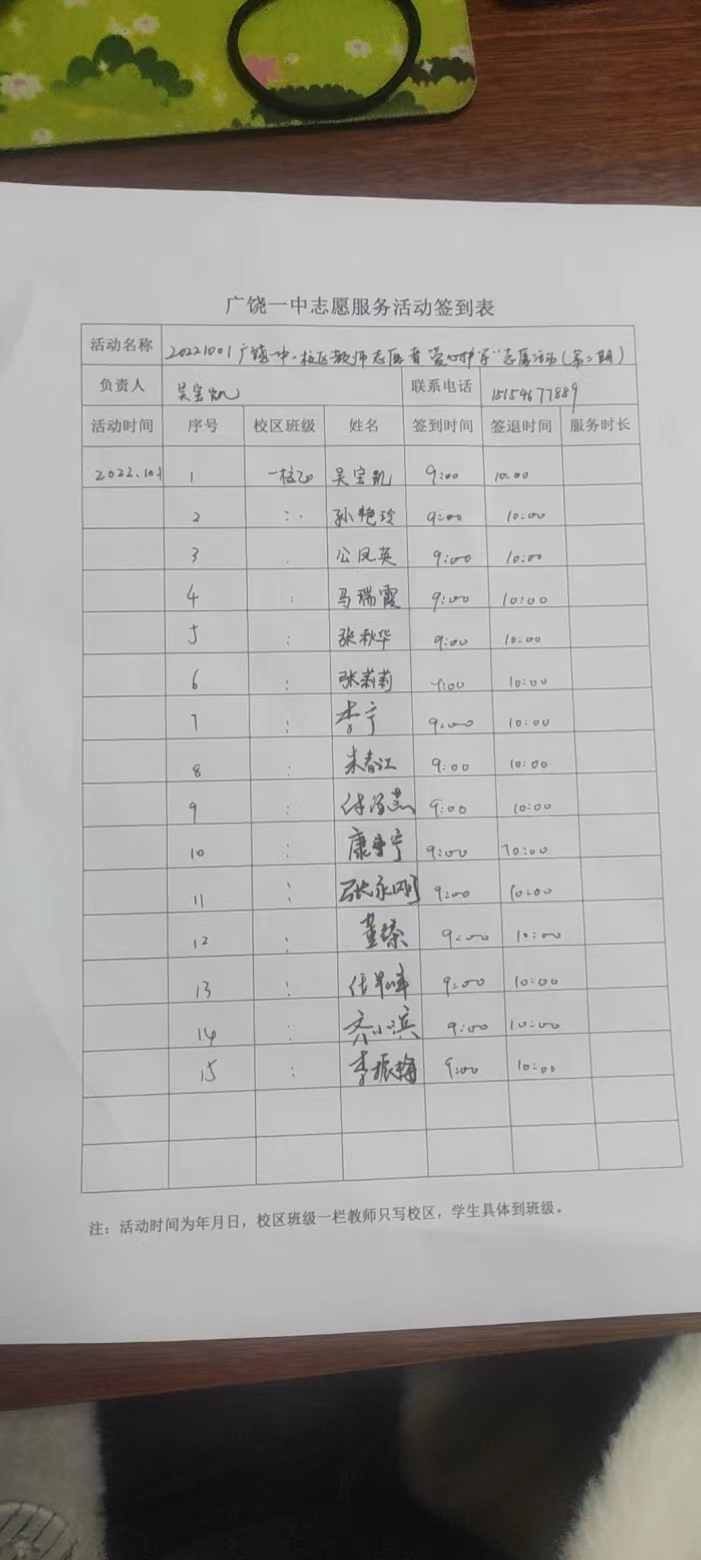 广饶一中志愿服务活动签到表
活动名称 20221001广饶一中一校区教师志愿者"爱心助学"志愿活动(第二期)
负责人 吴宝凯 联系电话 15154677889
活动时间 序号 校区班级 姓名 签到时间 签退时间 服务时长
2022.10.1 1 一校区 吴宝凯 9:00 10:00
2 : 孙艳玲 9:00 10:00
3 公凤英 9:00 10:00
4 : 马瑞霞 9:00 10:00
5 : 张秋华 9:00 10:00
6 : 张莉莉 9:00 10:00
7 : 李宁 9:00 10:00
8 : 朱春江 9:00 10:00
9 : 9:00 10:00
10 : 9:00 10:00
11 : 张永刚 9:00 10:00
12 : 9:00 10:00
13 : 9:00 10:00
14 : 齐小滨 9:00 10:00
15 : 李振梅 9:00 10:00
注:活动时间为年月日,校区班级一栏教师只写校区,学生具体到班级。